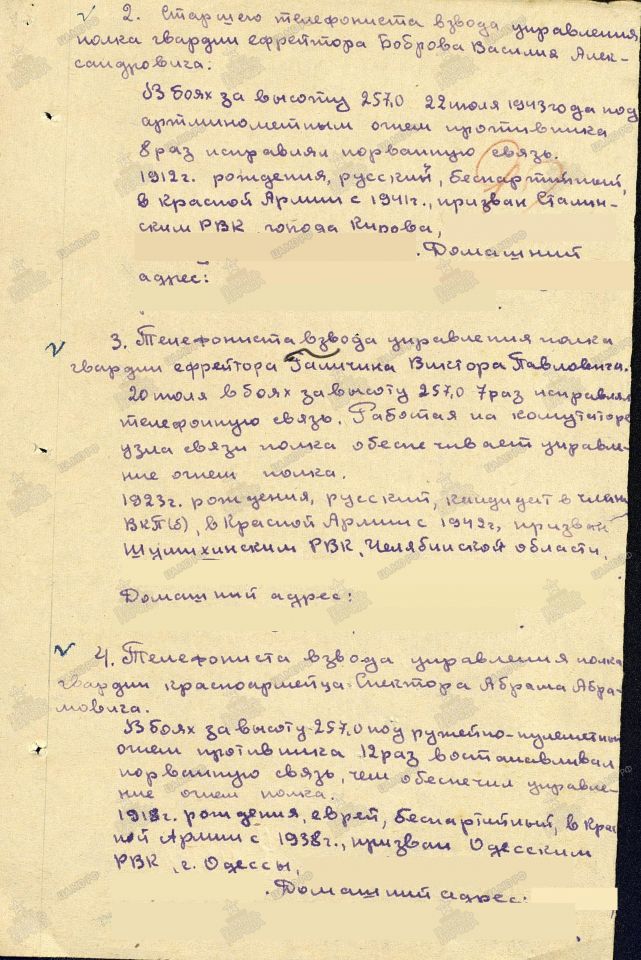 2. Старшего телефониста взвода управления
полка гвардии ефрейтора Боброва Василия Алек-
сандровича.
В боях за высоту 257,0 22 июля 1943 года под
артминометным огнем противника
8 раз исправлял порванную связь.
1912г. рождения, русский, беспартийный,
в Красной Армии с 1941г., призван Сталин-
ским РВК города Кирова,
Домашний
адрес:
3. Телефониста взвода управления полка
гвардии ефрейтора Галичина Виктора Павловича.
20 июля в боях за высоту 257,0 7 раз исправлял
телефонную связь. Работая на комутаторе
узла связи полка обеспечивает управле-
ние огнем полка.
1923г. рождения, русский, кандидат в члены
ВКП(б), в Красной Армии с 1942г, призван
РВК, Челябинской области,
Домашний адрес:
4. Телефониста взвода управления полка
гвардии красноармейца Спектора Абрама Абра-
мовича.
В боях за высоту 257,0 под ружейно-пулеметным
огнем противника 12 раз востанавливал
порванную связь, чем обеспечил управле-
ние огнем полка.
1918г. рождения, еврей, беспартийный, в Крас-
ной Армии с 1938г., призван Одесским
РВК, г. Одессы,
Домашний адрес: